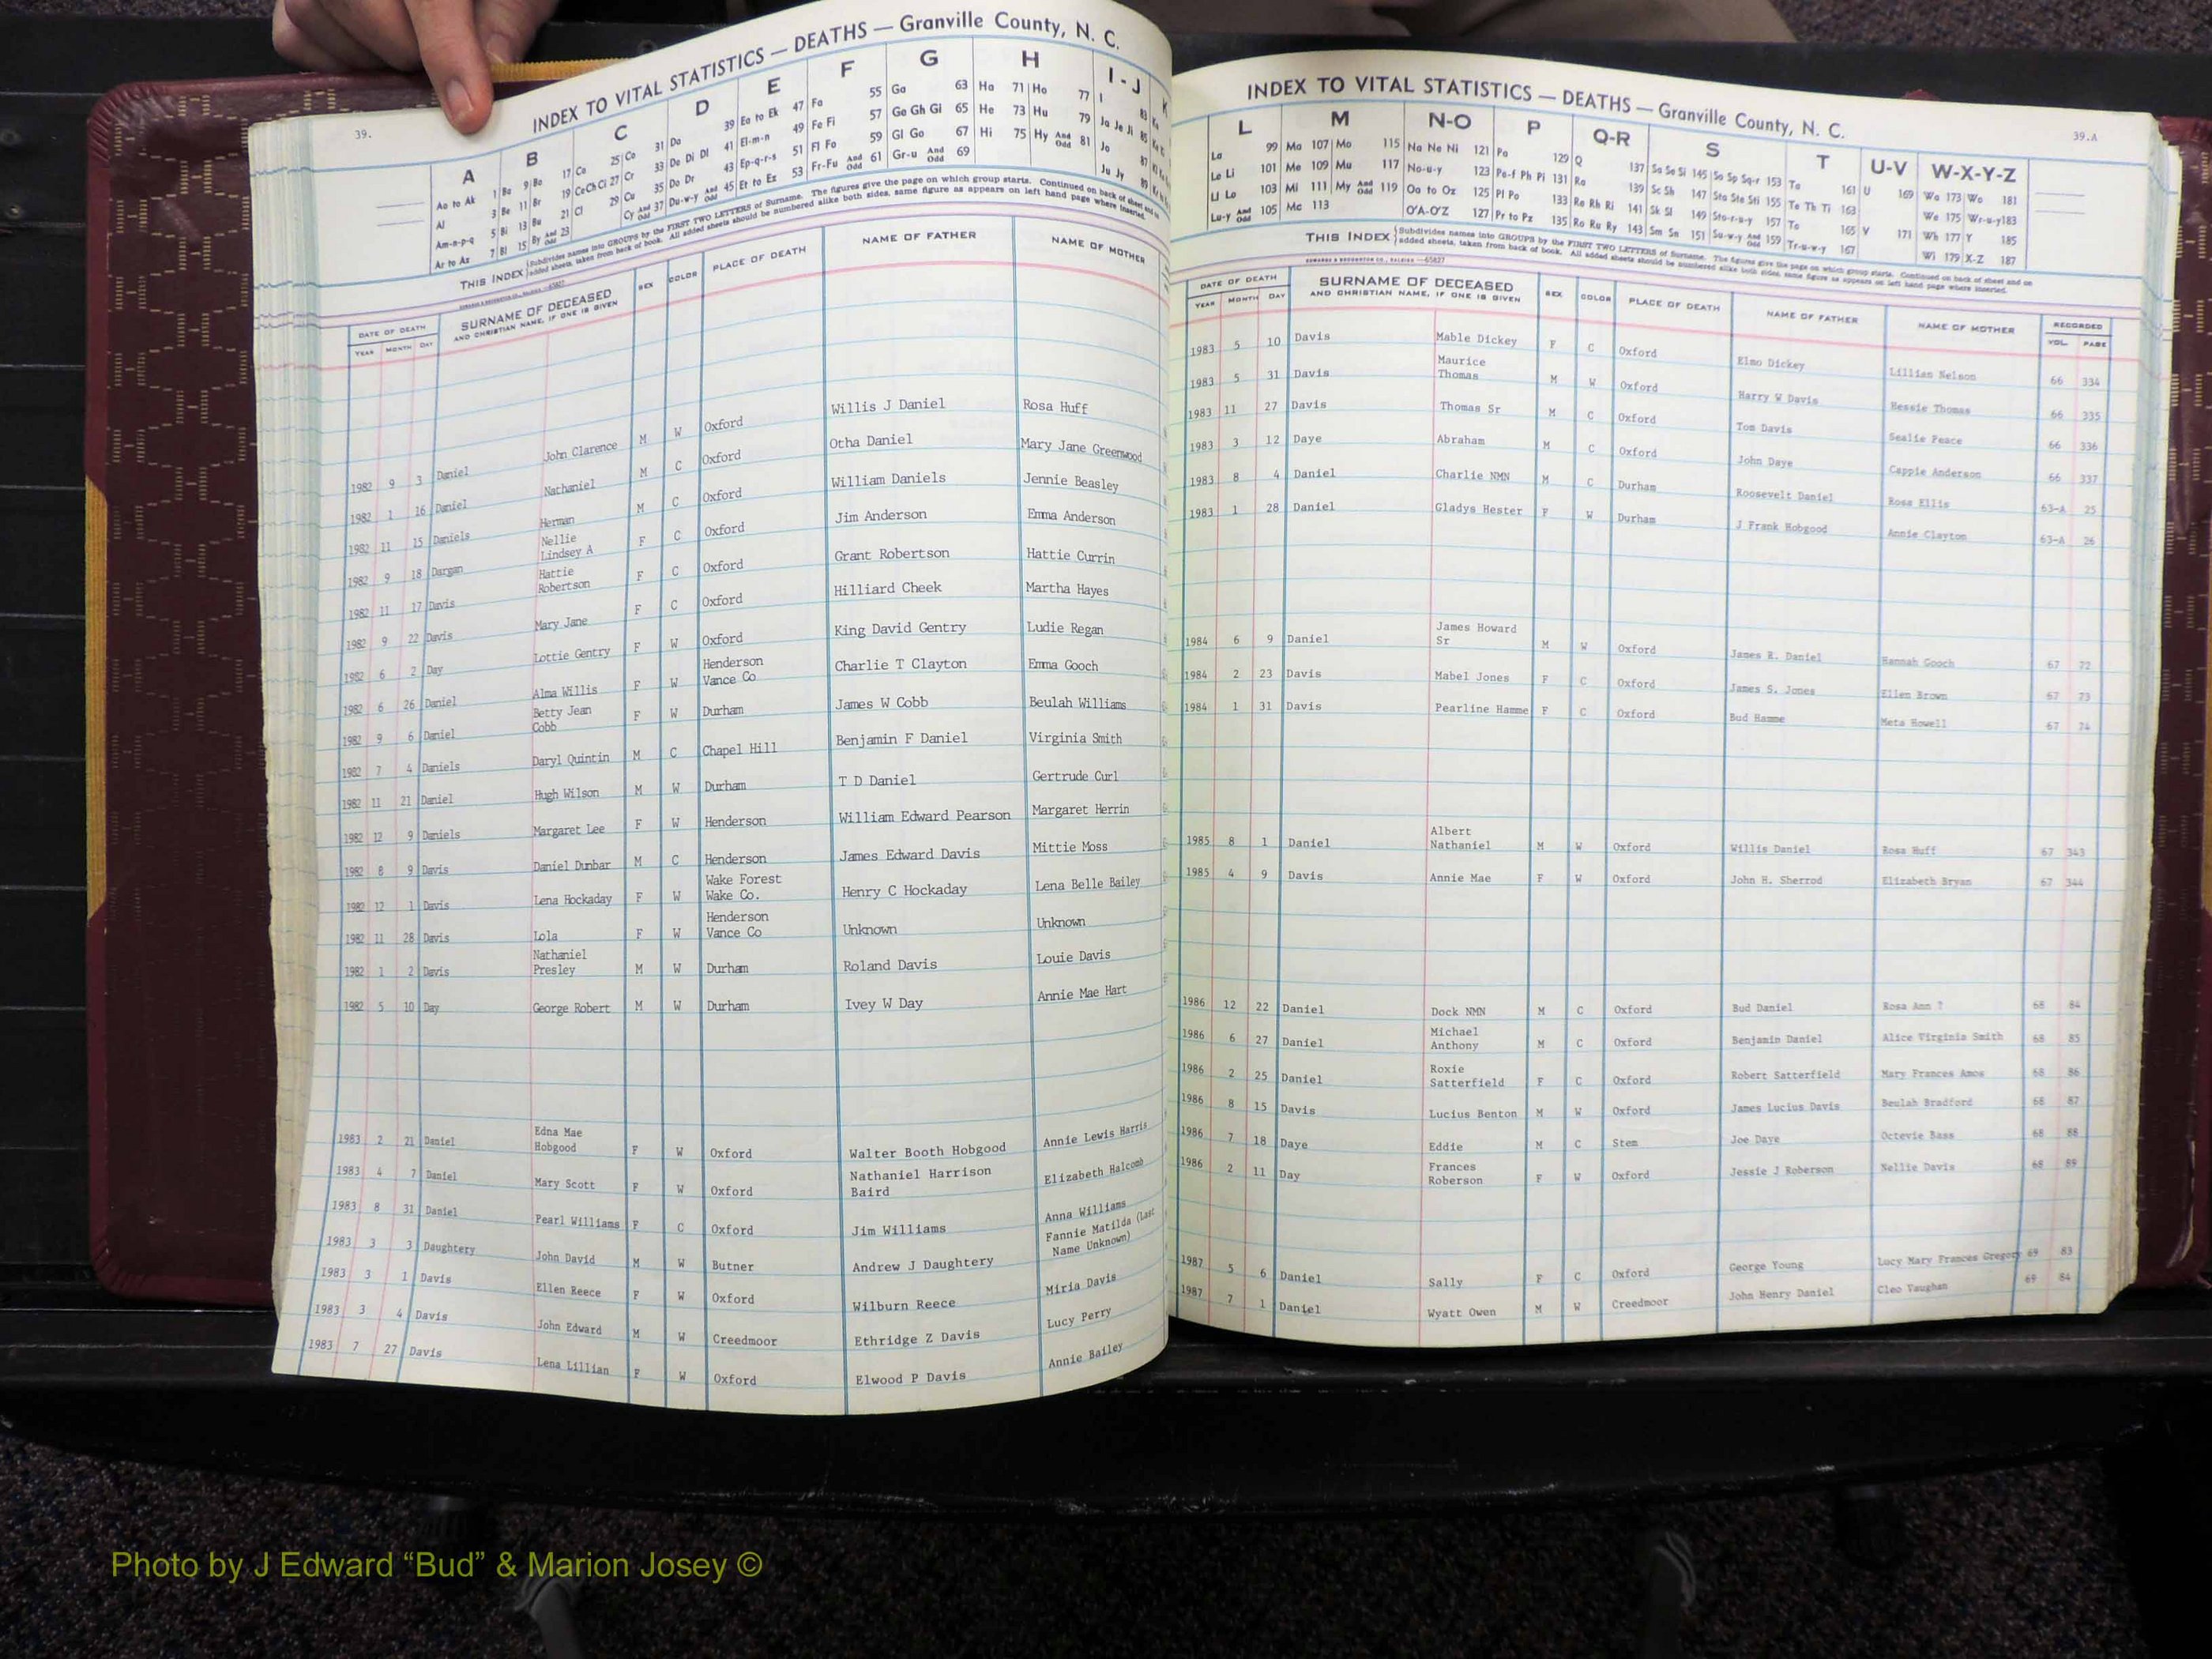 39.
INDEX TO VITAL STATISTICS — DEATHS — Granville County, N. C.
A B C D E F G H I-J K
Aa to Ak 1 Ba 9 Bo 17 Ca 25 Co 31 Da 39 Ea to Ek 47 Fa 55 Ga 63 Ha 71 Ho 77 I 83
Al 3 Be 11 Br 19 Ce Ch Ci 27 Cr 33 De Di Dl 41 El-m-n 49 Fe Fi 57 Ge Gh Gi 65 He 73 Hu 79 Ja Je Ji 85
Am-n-p-q 5 Bi 13 Bu 21 Cl 29 Cu 35 Do Dr 43 Ep-q-r-s 51 Fl Fo 59 Gl Go 67 Hi 75 Hy And Odd 81 Jo 87
Ar to Az 7 Bl 15 By And Odd 23 Cy And Odd 37 Du-w-y And Odd 45 Et to Ez 53 Fr-Fu And Odd 61 Gr-u And Odd 69 Ju Jy 89
THIS INDEX Subdivides names into GROUPS by the FIRST TWO LETTERS of Surname. The figures give the page on which group starts. Continued on back of sheet and on
added sheets, taken from back of book. All added sheets should be numbered alike both sides, same figure as appears on left hand page where inserted.
DATE OF DEATH YEAR MONTH DAY SURNAME OF DECEASED AND CHRISTIAN NAME, IF ONE IS GIVEN SEX COLOR PLACE OF DEATH NAME OF FATHER NAME OF MOTHER
1982 9 3 Daniel John Clarence M W Oxford Willis J Daniel Rosa Huff
1982 1 16 Daniel Nathaniel M C Oxford Otha Daniel Mary Jane Greenwood
1982 11 15 Daniels Herman M C Oxford William Daniels Jennie Beasley
1982 9 18 Dargan Nellie Lindsey A F C Oxford Jim Anderson Emma Anderson
1982 11 17 Davis Hattie Robertson F C Oxford Grant Robertson Hattie Currin
1982 9 22 Davis Mary Jane F C Oxford Hilliard Cheek Martha Hayes
1982 6 2 Day Lottie Gentry F W Oxford King David Gentry Ludie Regan
1982 6 26 Daniel Alma Willis F W Henderson Vance Co Charlie T Clayton Emma Gooch
1982 9 6 Daniel Betty Jean Cobb F W Durham James W Cobb Beulah Williams
1982 7 4 Daniels Daryl Quintin M C Chapel Hill Benjamin F Daniel Virginia Smith
1982 11 21 Daniel Hugh Wilson M W Durham T D Daniel Gertrude Curl
1982 12 9 Daniels Margaret Lee F W Henderson William Edward Pearson Margaret Herrin
1982 8 9 Davis Daniel Dunbar M C Henderson James Edward Davis Mittie Moss
1982 12 1 Davis Lena Hockaday F W Wake Forest Wake Co. Henry C Hockaday Lena Belle Bailey
1982 11 28 Davis Lola F W Henderson Vance Co Unknown Unknown
1982 1 2 Davis Nathaniel Presley M W Durham Roland Davis Louie Davis
1982 5 10 Day George Robert M W Durham Ivey W Day Annie Mae Hart
1983 2 21 Daniel Edna Mae Hobgood F W Oxford Walter Booth Hobgood Annie Lewis Harris
1983 4 7 Daniel Mary Scott F W Oxford Nathaniel Harrison Baird Elizabeth Halcomb
1983 8 31 Daniel Pearl Williams F C Oxford Jim Williams Anna Williams
1983 3 3 Daughtery John David M W Butner Andrew J Daughtery Fannie Matilda (Last Name Unknown)
1983 3 1 Davis Ellen Reece F W Oxford Wilburn Reece Miria Davis
1983 3 4 Davis John Edward M W Creedmoor Ethridge Z Davis Lucy Perry
1983 7 27 Davis Lena Lillian F W Oxford Elwood P Davis Annie Bailey
INDEX TO VITAL STATISTICS — DEATHS — Granville County, N. C.
39.A
L M N-O P Q-R S T U-V W-X-Y-Z
La 99 Ma 107 Mo 115 Na Ne Ni 121 Pa 129 Q 137 Sa Se Si 145 Sn Sp Sq-r 153 Ta 161 U 169 Wa 173 Wo 181
Le Li 101 Me 109 Mu 117 No-u-y 123 Pe-f Ph Pi 131 Ra 139 Sc Sh 147 Sta Ste Sti 155 Te Th Ti 163 We 175 Wr-u-y 183
Ll Lo 103 Mi 111 My And Odd 119 Oa to Oz 125 Pl Po 133 Re Rh Ri 141 Sk Sl 149 Sto-r-u-y 157 To 165 V 171 Wh 177 Y 185
Lu-y And Odd 105 Mc 113 O'A-O'Z 127 Pr to Pz 135 Ro Ru Ry 143 Sm Sn 151 Su-w-y And Odd 159 Tr-u-w-y 167 Wi 179 X-Z 187
THIS INDEX Subdivides names into GROUPS by the FIRST TWO LETTERS of Surname. The figures give the page on which group starts. Continued on back of sheet and on
added sheets, taken from back of book. All added sheets should be numbered alike both sides, same figure as appears on left hand page where inserted.
DATE OF DEATH YEAR MONTH DAY SURNAME OF DECEASED AND CHRISTIAN NAME, IF ONE IS GIVEN SEX COLOR PLACE OF DEATH NAME OF FATHER NAME OF MOTHER RECORDED VOL. PAGE
1983 5 10 Davis Mable Dickey F C Oxford Elmo Dickey Lillian Nelson 66 334
1983 5 31 Davis Maurice Thomas M W Oxford Harry W Davis Bessie Thomas 66 335
1983 11 27 Davis Thomas Sr M C Oxford Tom Davis Sealie Peace 66 336
1983 3 12 Daye Abraham M C Oxford John Daye Cappie Anderson 66 337
1983 8 4 Daniel Charlie NMN M C Durham Roosevelt Daniel Rosa Ellis 63-A 25
1983 1 28 Daniel Gladys Hester F W Durham J Frank Hobgood Annie Clayton 63-A 26
1984 6 9 Daniel James Howard Sr M W Oxford James R. Daniel Hannah Gooch 67 72
1984 2 23 Davis Mabel Jones F C Oxford James S. Jones Ellen Brown 67 73
1984 1 31 Davis Pearline Hamme F C Oxford Bud Hamme Meta Howell 67 74
1985 8 1 Daniel Albert Nathaniel M W Oxford Willis Daniel Rosa Huff 67 343
1985 4 9 Davis Annie Mae F W Oxford John H. Sherrod Elizabeth Bryan 67 344
1986 12 22 Daniel Dock NMN M C Oxford Bud Daniel Rosa Ann ? 68 84
1986 6 27 Daniel Michael Anthony M C Oxford Benjamin Daniel Alice Virginia Smith 68 85
1986 2 25 Daniel Roxie Satterfield F C Oxford Robert Satterfield Mary Frances Amos 68 86
1986 8 15 Davis Lucius Benton M W Oxford James Lucius Davis Beulah Bradford 68 87
1986 7 18 Daye Eddie M C Stem Joe Daye Octevie Bass 68 88
1986 2 11 Day Frances Roberson F W Oxford Jessie J Roberson Nellie Davis 68 89
1987 5 6 Daniel Sally F C Oxford George Young Lucy Mary Frances Gregory 69 83
1987 7 1 Daniel Wyatt Owen M W Creedmoor John Henry Daniel Cleo Vaughan 69 84
Photo by J Edward “Bud” & Marion Josey ©